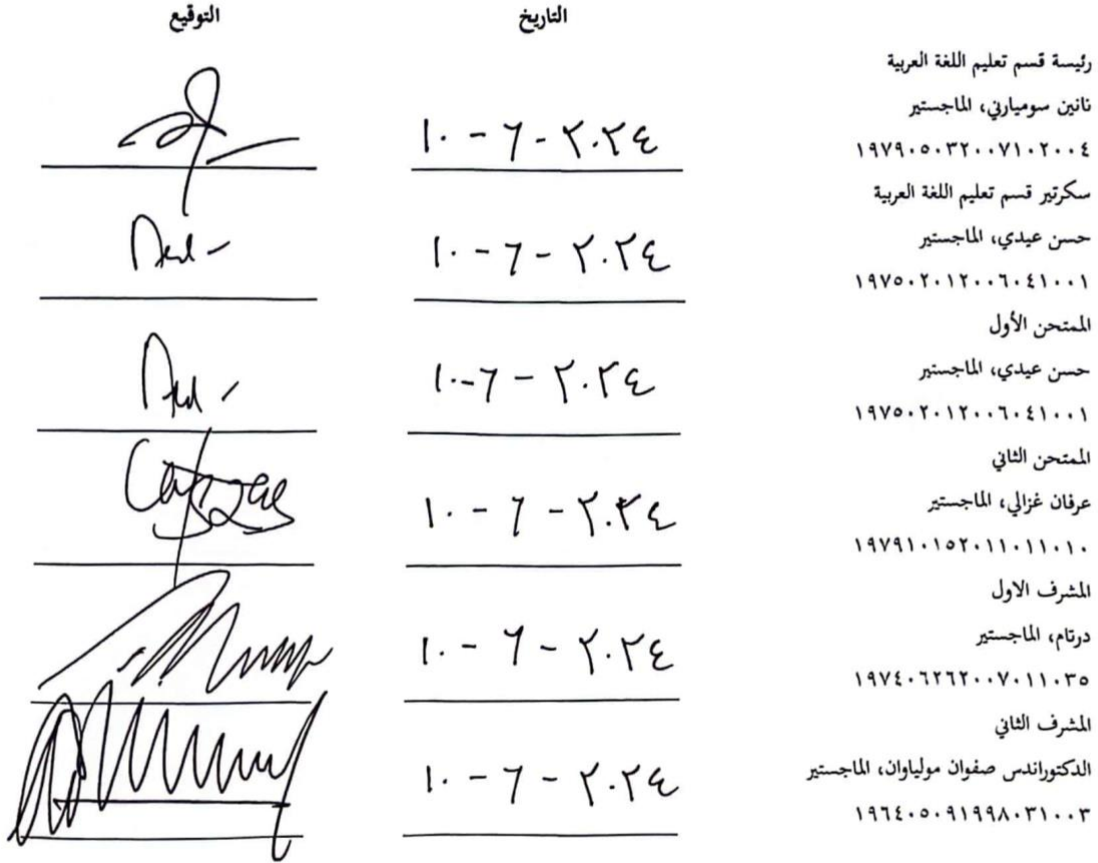 التاريخ التوقيع
رئيسة قسم تعليم اللغة العربية
نانين سوميارني، الماجستير
١٩٧٩٠٥٠٣٢٠٠٧١٠٢٠٠٤ ١٠ - ٦ - ٢٠٢٤
سكرتير قسم تعليم اللغة العربية
حسن عيدي، الماجستير
١٩٧٥٠٢٠١٢٠٠٦٠٤١٠٠١ ١٠ - ٦ - ٢٠٢٤
الممتحن الأول
حسن عيدي، الماجستير
١٩٧٥٠٢٠١٢٠٠٦٠٤١٠٠١ ١٠-٦ - ٢٠٢٤
الممتحن الثاني
عرفان غزالي، الماجستير
١٩٧٩١٠١٥٢٠١١٠١١٠١٠ ١٠ - ٦ - ٢٠٢٤
المشرف الاول
درتام، الماجستير
١٩٧٤٠٦٢٦٢٠٠٧٠١١٠٣٥ ١٠ - ٦ - ٢٠٢٤
المشرف الثاني
الدكتوراندس صفوان مولياوان، الماجستير
١٩٦٤٠٥٠٩١٩٩٨٠٣١٠٠٣ ١٠ - ٦ - ٢٠٢٤